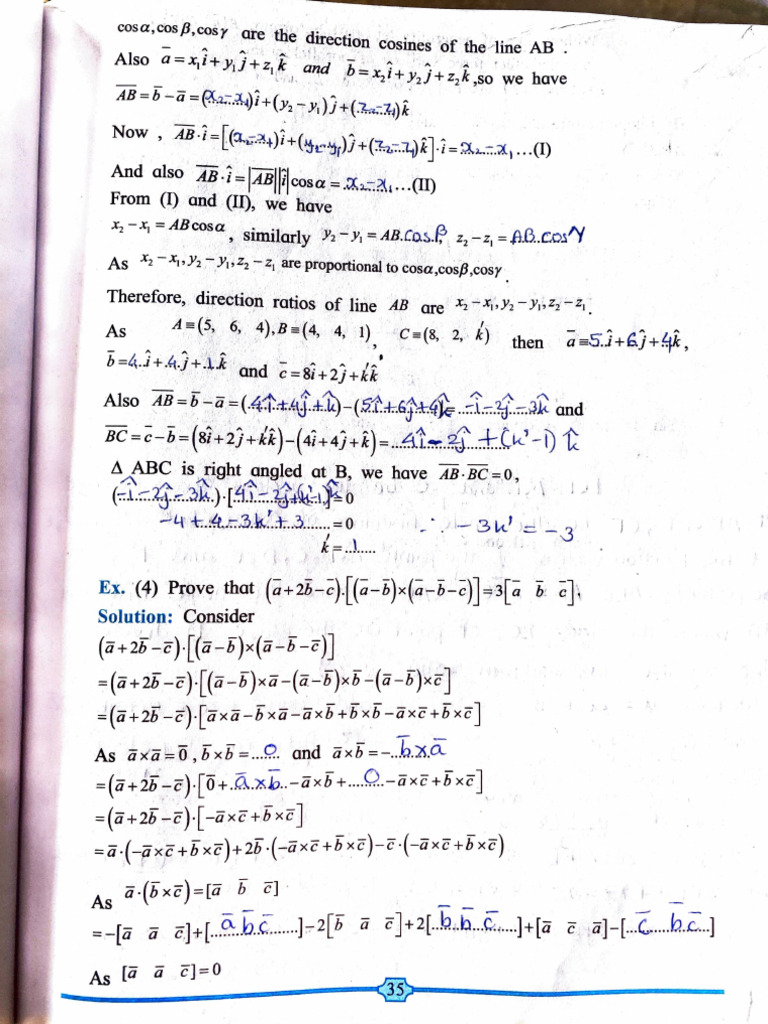 cosα,cosβ,cosγ are the direction cosines of the line AB .
Also a̅ = x₁î + y₁ĵ + z₁k̂ and b̅ = x₂î + y₂ĵ + z₂k̂ ,so we have
A̅B̅ = b̅ − a̅ = (x₂−x₁)î + (y₂ − y₁)ĵ + (z₂−z₁)k̂
Now , A̅B̅·î = [(x₂−x₁)î + (y₂−y₁)ĵ + (z₂−z₁)k̂]·î = x₂−x₁ ...(I)
And also A̅B̅·î = |A̅B̅||î|cosα = x₂−x₁ ...(II)
From (I) and (II), we have
x₂ − x₁ = AB cosα , similarly y₂ − y₁ = AB.cos.β, z₂ − z₁ = AB.cosγ
As x₂ − x₁, y₂ − y₁, z₂ − z₁ are proportional to cosα,cosβ,cosγ .
Therefore, direction ratios of line AB are x₂ − x₁, y₂ − y₁, z₂ − z₁.
As A ≡ (5, 6, 4), B ≡ (4, 4, 1), C ≡ (8, 2, k') then a̅ = 5î + 6ĵ + 4k̂ ,
b̅ = 4.î + 4.ĵ + .1.k̂ and c̅ = 8î + 2ĵ + k'k̂
Also A̅B̅ = b̅ − a̅ = (4î+4ĵ+k̂) − (5î+6ĵ+4k̂) = −î−2ĵ−3k̂ and
B̅C̅ = c̅ − b̅ = (8î + 2ĵ + k'k̂) − (4î + 4ĵ + k̂) = 4î − 2ĵ + (k'−1) k̂
Δ ABC is right angled at B, we have A̅B̅·B̅C̅ = 0 ,
(−î−2ĵ−3k̂)·[4î−2ĵ+(k'−1)k̂] = 0
−4 + 4 − 3k' + 3 = 0 ∴ − 3k' = −3
k' = 1
Ex. (4) Prove that (a̅ + 2b̅ − c̅).[(a̅ − b̅)×(a̅ − b̅ − c̅)] = 3[a̅ b̅ c̅].
Solution: Consider
(a̅ + 2b̅ − c̅)·[(a̅ − b̅)×(a̅ − b̅ − c̅)]
= (a̅ + 2b̅ − c̅)·[(a̅ − b̅)×a̅ − (a̅ − b̅)×b̅ − (a̅ − b̅)×c̅]
= (a̅ + 2b̅ − c̅)·[a̅×a̅ − b̅×a̅ − a̅×b̅ + b̅×b̅ − a̅×c̅ + b̅×c̅]
As a̅×a̅ = 0̅ , b̅×b̅ = 0 and a̅×b̅ = − b̅×a̅
= (a̅ + 2b̅ − c̅)·[0̅ + a̅×b̅ − a̅×b̅ + 0 − a̅×c̅ + b̅×c̅]
= (a̅ + 2b̅ − c̅)·[−a̅×c̅ + b̅×c̅]
= a̅·(−a̅×c̅ + b̅×c̅) + 2b̅·(−a̅×c̅ + b̅×c̅) − c̅·(−a̅×c̅ + b̅×c̅)
As a̅·(b̅×c̅) = [a̅ b̅ c̅]
= −[a̅ a̅ c̅] + [a̅ b̅ c̅] − 2[b̅ a̅ c̅] + 2[b̅ b̅ c̅] + [a̅ c̅ a̅] − [c̅ b̅ c̅]
As [a̅ a̅ c̅] = 0
35